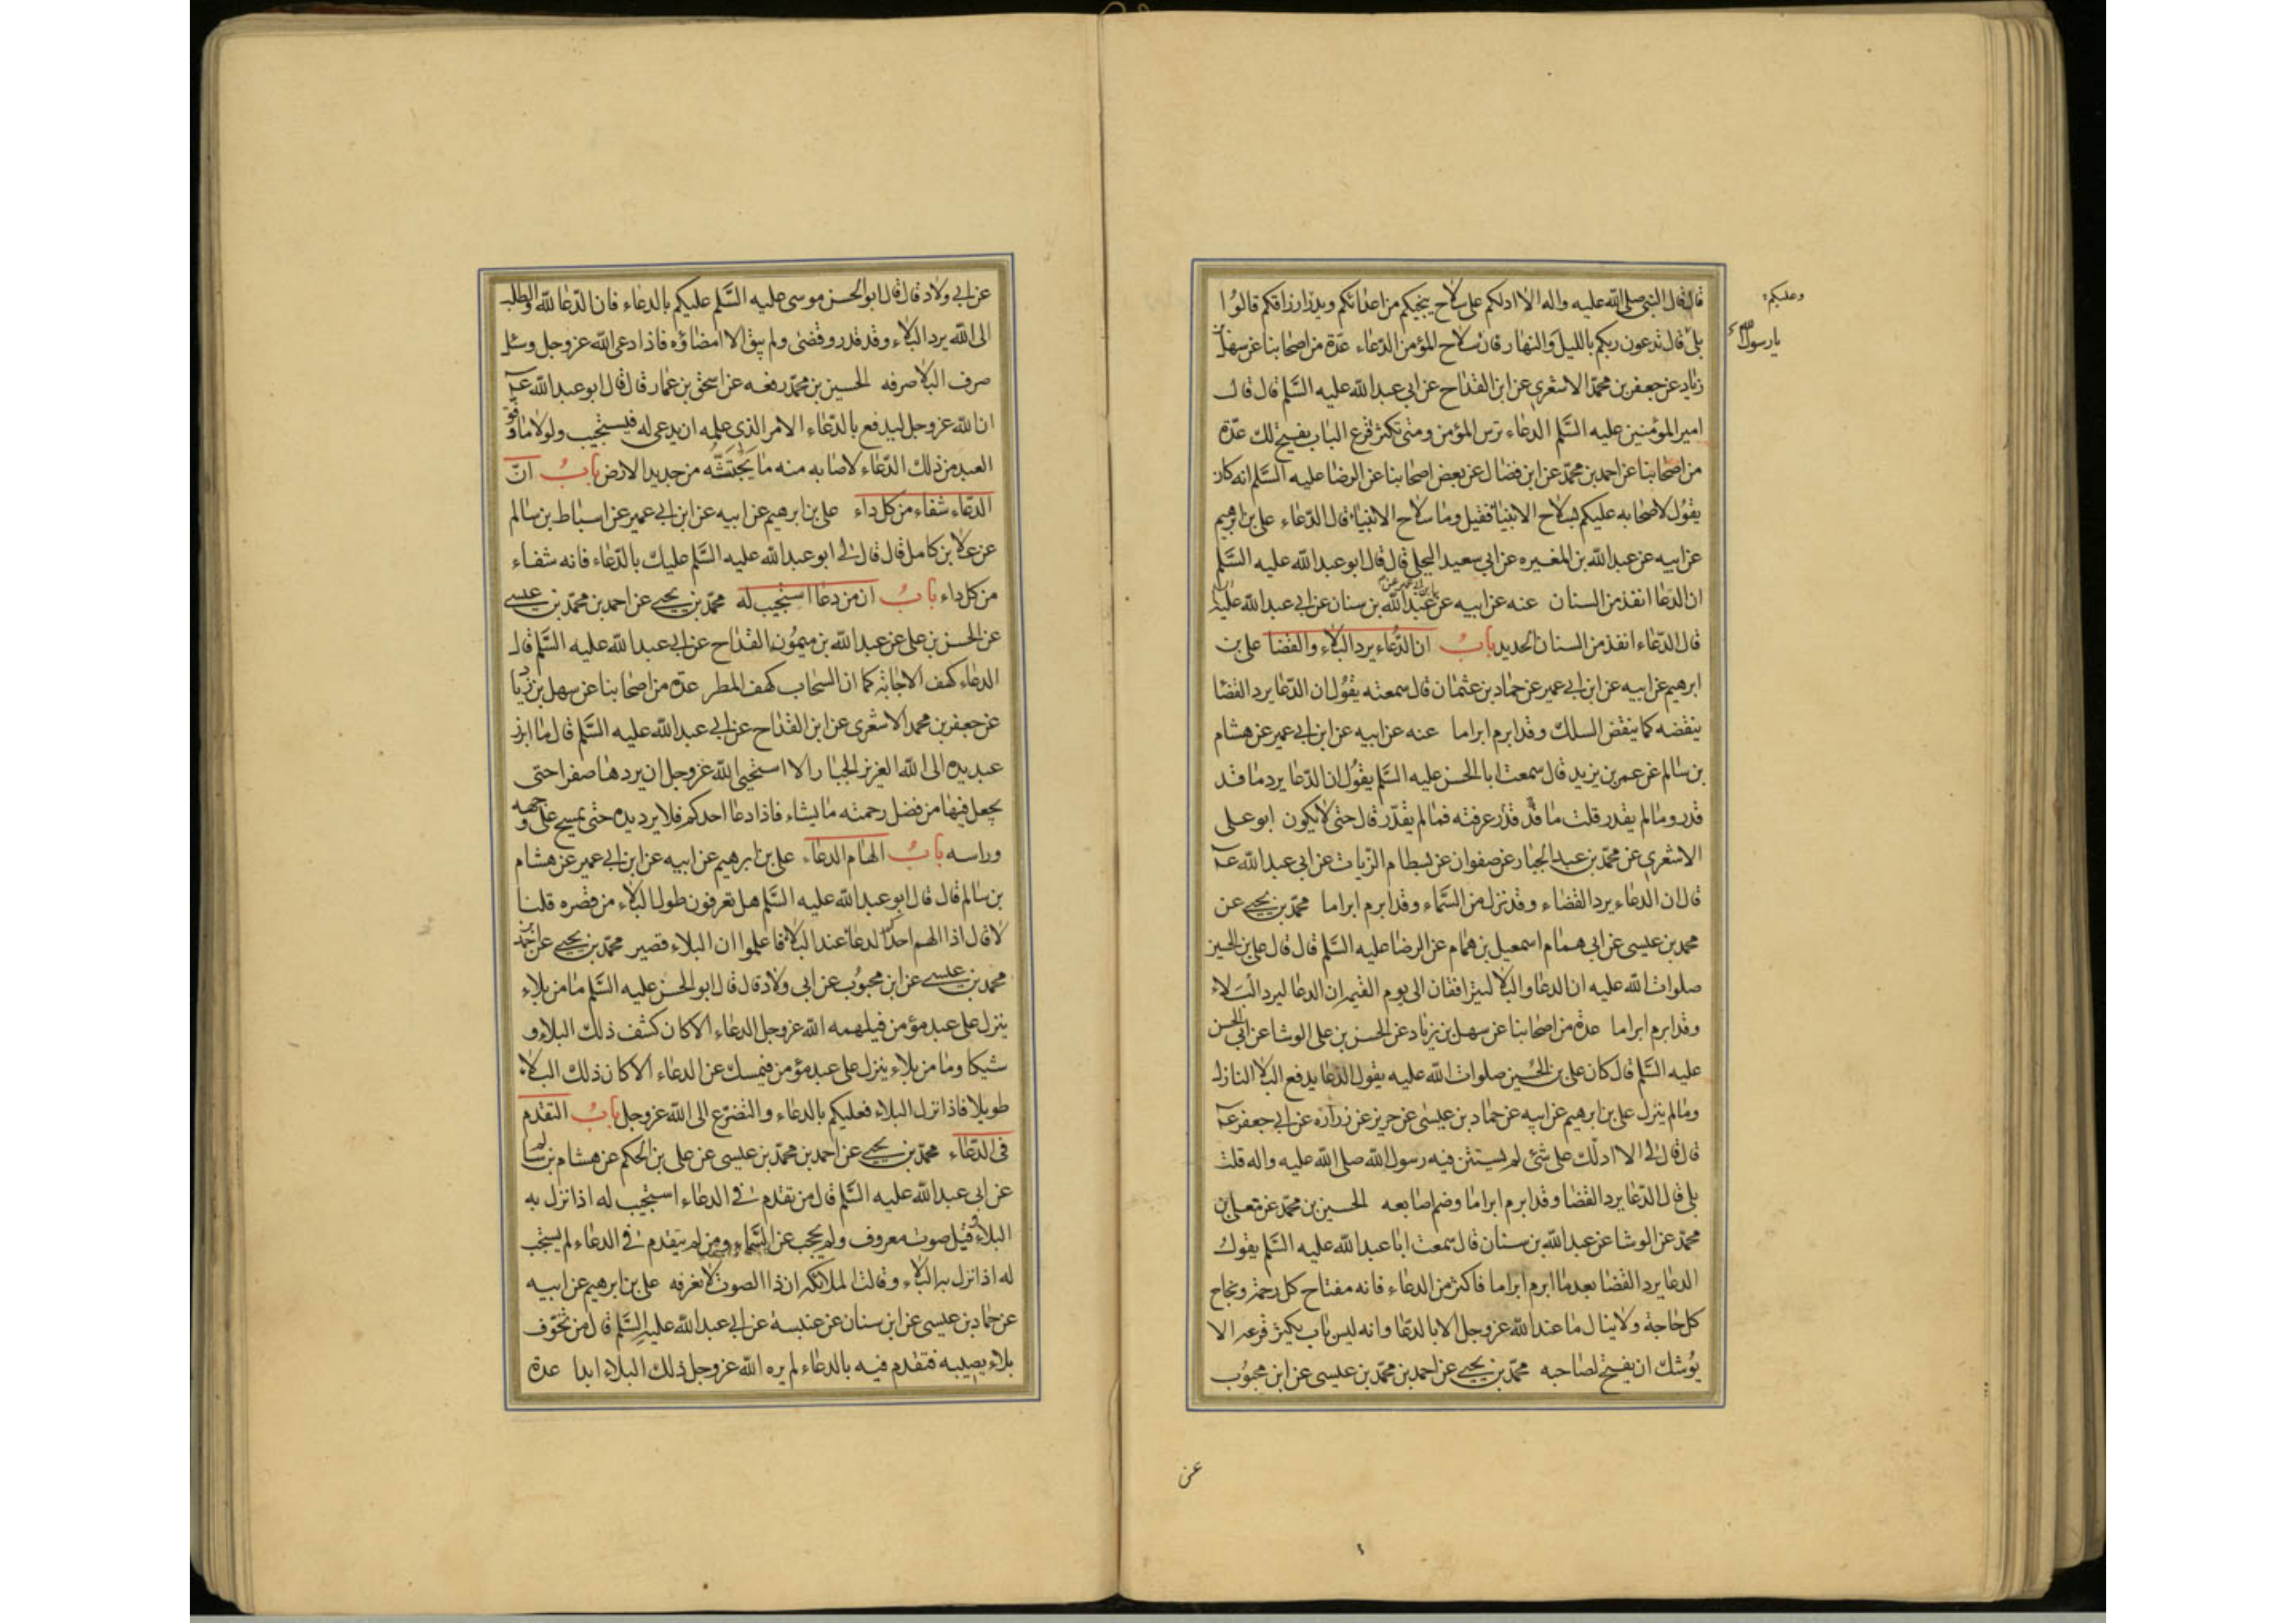 قال قال النبي صلى الله عليه واله الا ادلكم على سلاح ينجيكم من اعدائكم ويدر ارزاقكم قالوا
وعليكم
بلى قال تدعون ربكم بالليل والنهار فان سلاح المؤمن الدعاء عدة من اصحابنا عن سهل بن
يا رسول الله
زياد عن جعفر بن محمد الاشعري عن ابن القداح عن ابي عبد الله عليه السلم قال قال
امير المؤمنين عليه السلم الدعاء ترس المؤمن ومتى تكثر قرع الباب يفتح لك عدة
من اصحابنا عن احمد بن محمد عن ابن فضال عن بعض اصحابنا عن الرضا عليه السلم انه كان
يقول لاصحابه عليكم بسلاح الانبياء فقيل وما سلاح الانبياء قال الدعاء علي بن ابرهيم
عن ابيه عن عبد الله بن المغيره عن ابي سعيد البجلي قال قال ابو عبد الله عليه السلم
ان الدعا انفذ من السنان عنه عن ابيه عن عبد الله بن سنان عن ابي عبد الله عليه السلم
قال الدعاء انفذ من السنان الحديد باب ان الدعاء يرد البلاء والقضا علي بن
ابرهيم عن ابيه عن ابن ابي عمير عن حماد بن عثمان قال سمعته يقول ان الدعا يرد القضا
ينقضه كما ينقض السلك وقد ابرم ابراما عنه عن ابيه عن ابن ابي عمير عن هشام
بن سالم عن عمر بن يزيد قال سمعت ابا الحسن عليه السلم يقول ان الدعا يرد ما قد
قدر وما لم يقدر قلت ما قد قدر عرفته فما لم يقدر قال حتى لا يكون ابو علي
الاشعري عن محمد بن عبد الجبار عن صفوان عن بسطام الزيات عن ابي عبد الله عـ
قال ان الدعاء يرد القضاء وقد نزل من السماء وقد ابرم ابراما محمد بن يحيى عن
محمد بن عيسى عن ابي همام اسمعيل بن همام عن الرضا عليه السلم قال قال علي بن الحسين
صلوات الله عليه ان الدعا والبلا ليترافقان الى يوم القيمة ان الدعا ليرد البلاء
وقد ابرم ابراما عدة من اصحابنا عن سهل بن زياد عن الحسن بن علي الوشا عن ابي الحسن
عليه السلم قال كان علي بن الحسين صلوات الله عليه يقول الدعا يدفع البلا النازل
وما لم ينزل علي بن ابرهيم عن ابيه عن حماد بن عيسى عن حريز عن زرارة عن ابي جعفر عـ
قال قال لي الا ادلك على شئ لم يستثن فيه رسول الله صلى الله عليه واله قلت
بلى قال الدعا يرد القضا وقد ابرم ابراما وضم اصابعه الحسين بن محمد عن معلى بن
محمد عن الوشا عن عبد الله بن سنان قال سمعت ابا عبد الله عليه السلم يقول
الدعا يرد القضا بعد ما ابرم ابراما فاكثر من الدعاء فانه مفتاح كل رحمة ونجاح
كل حاجة ولا ينال ما عند الله عز وجل الا بالدعا وانه ليس باب يكثر قرعه الا
يوشك ان يفتح لصاحبه محمد بن يحيى عن احمد بن محمد بن عيسى عن ابن محبوب
عن
عن ابي ولاد قال قال ابو الحسن موسى عليه السلم عليكم بالدعاء فان الدعا لله والطلب
الى الله يرد البلاء وقد قدر وقضى ولم يبق الا امضاؤه فاذا دعي الله عز وجل وسئل
صرف البلا صرفه الحسين بن محمد رفعه عن اسحق بن عمار قال قال ابو عبد الله عـ
ان الله عز وجل ليدفع بالدعاء الامر الذي علمه ان يدعى له فيستجيب ولولا ما وفق
العبد من ذلك الدعاء لاصابه منه ما يجتثه من جديد الارض باب ان
الدعاء شفاء من كل داء علي بن ابرهيم عن ابيه عن ابن ابي عمير عن اسباط بن سالم
عن علا بن كامل قال قال لي ابو عبد الله عليه السلم عليك بالدعاء فانه شفاء
من كل داء باب ان من دعا استجيب له محمد بن يحيى عن احمد بن محمد بن عيسى
عن الحسن بن علي عن عبد الله بن ميمون القداح عن ابي عبد الله عليه السلم قال
الدعاء كهف الاجابة كما ان السحاب كهف المطر عدة من اصحابنا عن سهل بن زياد
عن جعفر بن محمد الاشعري عن ابن القداح عن ابي عبد الله عليه السلم قال ما ابرز
عبد يده الى الله العزيز الجبار الا استحيى الله عز وجل ان يردها صفرا حتى
يجعل فيها من فضل رحمته ما يشاء فاذا دعا احدكم فلا يرد يده حتى يمسح على وجهه
وراسه باب الهام الدعاء علي بن ابرهيم عن ابيه عن ابن ابي عمير عن هشام
بن سالم قال قال ابو عبد الله عليه السلم هل تعرفون طول البلاء من قصره قلنا
لا قال اذا الهم احدكم الدعاء عند البلاء فاعلموا ان البلاء قصير محمد بن يحيى عن احمد بن
محمد بن عيسى عن ابن محبوب عن ابي ولاد قال قال ابو الحسن عليه السلم ما من بلاء
ينزل على عبد مؤمن فيلهمه الله عز وجل الدعاء الا كان كشف ذلك البلاء و
شيكا وما من بلاء ينزل على عبد مؤمن فيمسك عن الدعاء الا كان ذلك البلاء
طويلا فاذا نزل البلاء فعليكم بالدعاء والتضرع الى الله عز وجل باب التقدم
في الدعاء محمد بن يحيى عن احمد بن محمد بن عيسى عن علي بن الحكم عن هشام بن سالم
عن ابي عبد الله عليه السلم قال من تقدم في الدعاء استجيب له اذا نزل به
البلاء وقيل صوت معروف ولم يحجب عن السماء ومن لم يتقدم في الدعاء لم يستجب
له اذا نزل به البلاء وقالت الملائكة ان ذا الصوت لا نعرفه علي بن ابرهيم عن ابيه
عن حماد بن عيسى عن ابن سنان عن عنبسة عن ابي عبد الله عليه السلم قال من تخوف
بلاء يصيبه فتقدم فيه بالدعاء لم يره الله عز وجل ذلك البلاء ابدا عدة